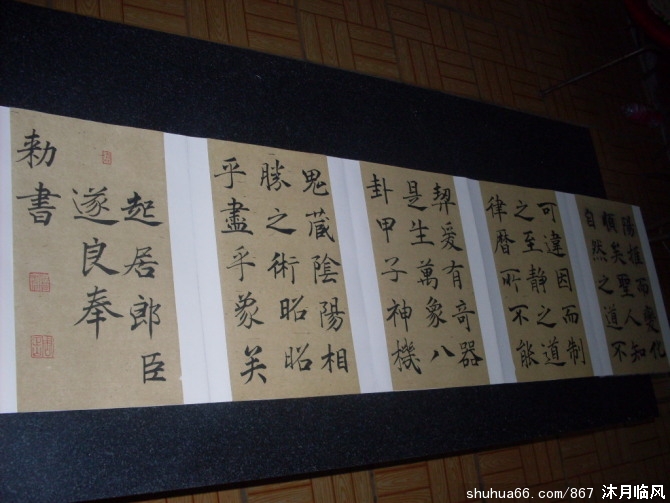 陽推而變化
順矣聖人知
自然之道不
可違因而制
之至靜之道
律曆所不能
契爰有奇器
是生萬象八
卦甲子神機
鬼藏陰陽相
勝之術昭昭
乎盡乎象矣
起居郎臣
遂良奉
勅書
shuhua66.com/867 沐月临风